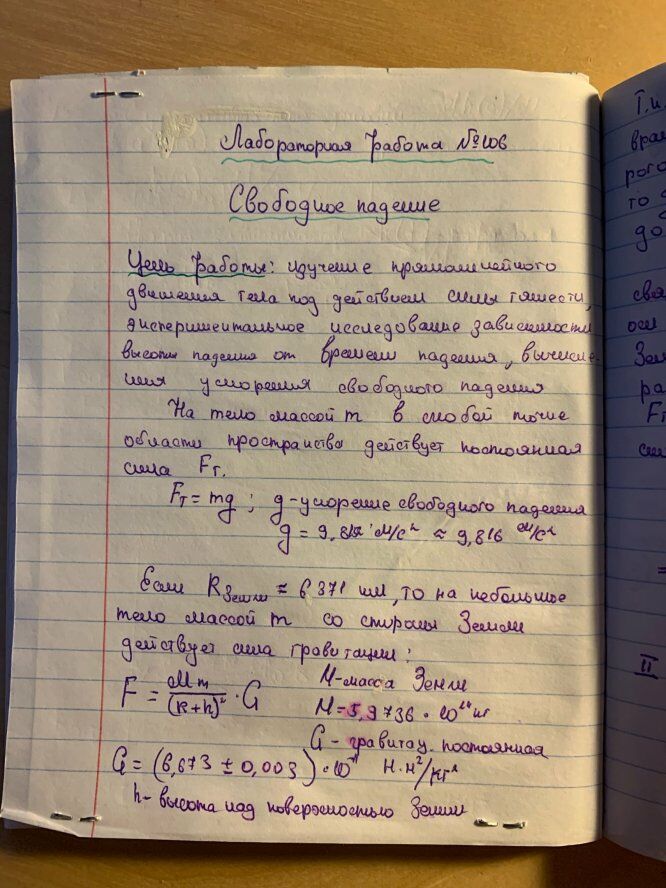 Лабораторная работа № 106
Свободное падение
Цель работы: изучение прямолинейного
движения тела под действием силы тяжести,
экспериментальное исследование зависимости
высоты падения от времени падения, вычисле-
ния ускорения свободного падения
На тело массой m в любой точке
области пространства действует постоянная
сила Fт.
Fт = mg ; g - ускорение свободного падения
g = м/с² ≈ 9,816 м/с²
Если R Земли ≈ 6371 км, то на небольшое
тело массой m со стороны Земли
действует сила гравитации:
F = Mm/(R+h)² · G
M - масса Земли
M = 5,9736 · 10²⁴ кг
G - гравитац. постоянная
G = (6,673 ± 0,003) · 10⁻¹¹ Н·м²/кг²
h - высота над поверхностью Земли
T.
вра
рого
то
до
свя
оси
Зем
ра
Fт
си
=
II